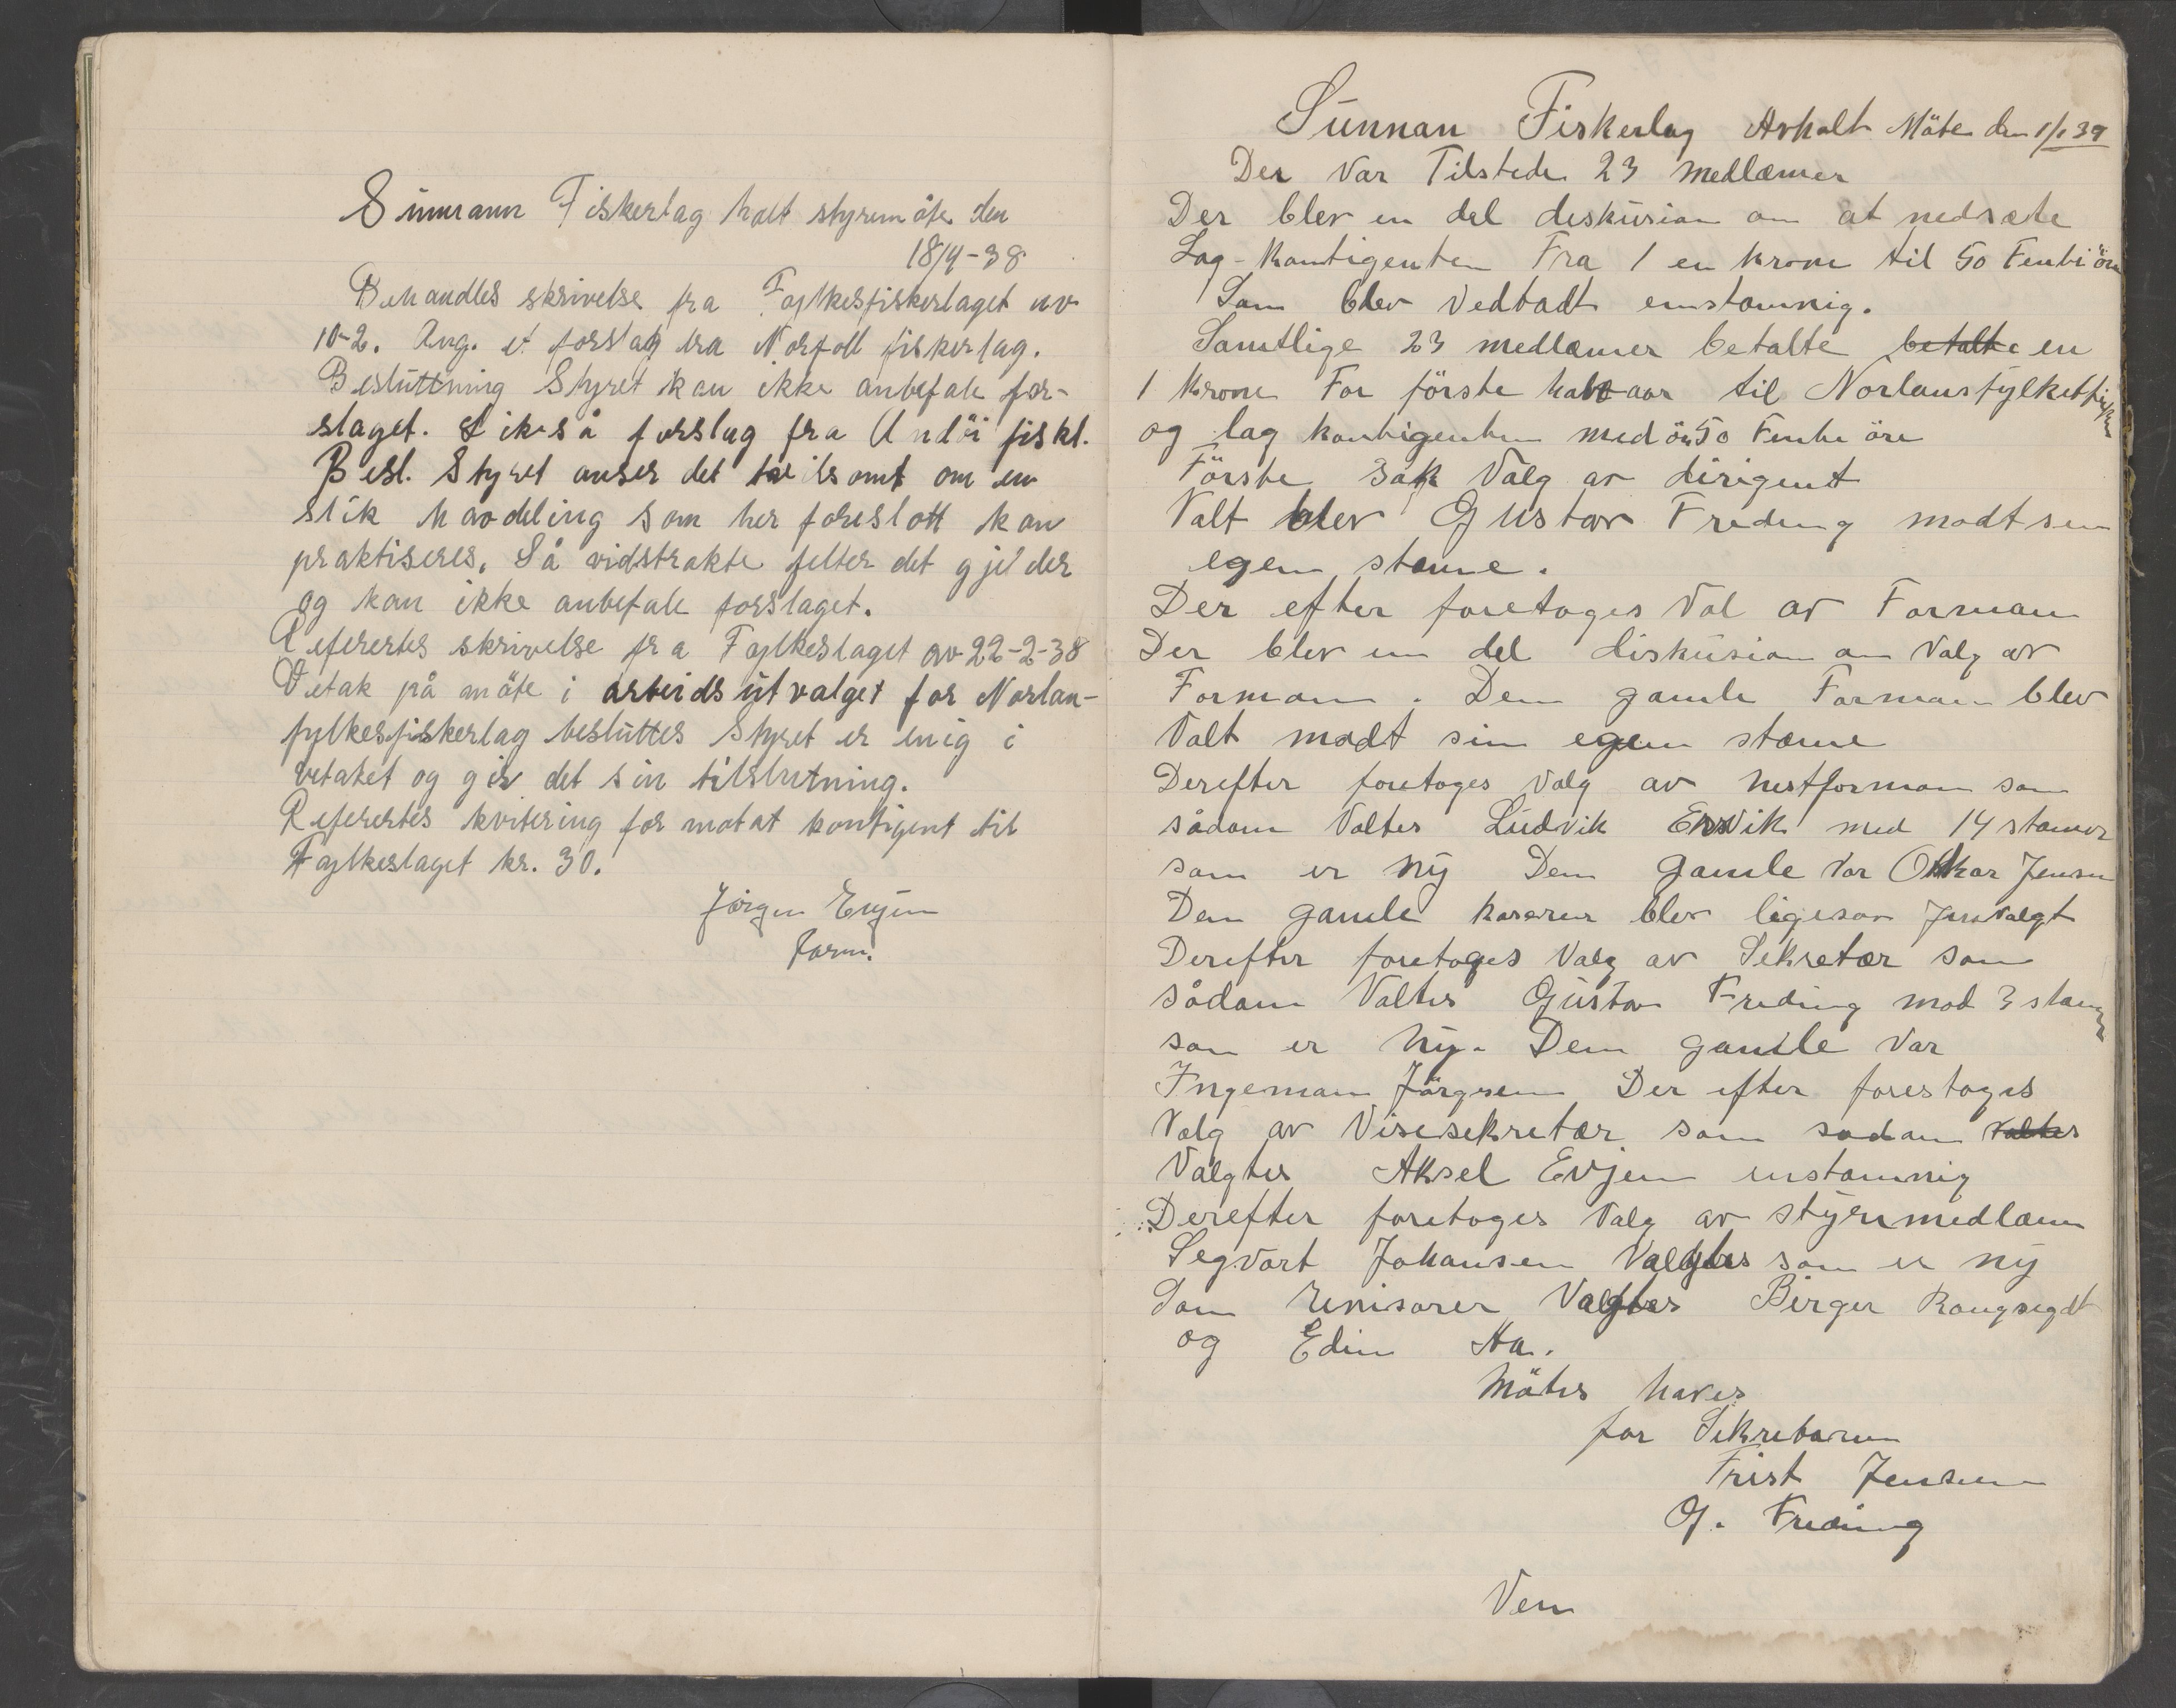 Sunnann Fiskerlag holt styremöte den
18/4-38
Behandles skrivelse fra Fylkesfiskerlaget av
10-2. Ang. et forslag fra Norfoll fiskerlag.
Besluttning Styret kan ikke anbefale for-
slaget. Likeså forslag fra Andöi fiskl.
Besl. Styret anser det tvilsomt om en
slik havdeling som her foreslott kan
praktiseres. Så vidstrakte felter det gjelder
og kan ikke anbefale forslaget.
Referertes skrivelse fra Fylkeslaget av 22-2-38
Vetak på möte i arbeidsutvalget for Norlan-
fylkesfiskerlag besluttes Styret er enig i
vetaket og gir det sin tilslutning.
Referertes kvitering for motat kontigent til
Fylkeslaget kr. 30.
Jörgen Evjen
form.
Sunnan Fiskerlag Avholt Möte den 1/1 39
Der Var Tilstede 23 medlæmer
Der blev en del deskusion om at nedsæte
Lag-Kontigenten Fra 1 en krone til 50 Femti öre
Som blev Vedtadt enstæmnig.
Samtlige 23 medlæmer betalte betalte en
1 Krone For förste halv aar til Norlansfylketfisker
og lag kontigenten med 50 Femti öre
Förste Sak Valg av dirigent
Valt blev Gustav Freding modt sin
egen stæme.
Der efter foretoges Val av Forman
Der blev en del diskusion om Valg av
Forman. Den gamle Forman blev
Valt modt sin egen stæme
Derefter foretoges Valg av nestforman som
sådann Valtes Ludvik Ersvik med 14 stæmer
som er ny Den gamle Var Oskar Jensen
Den gamle kaserer blev ligesov Jenvalgt
Derefter foretoges Valg av Sekretær som
sådann Valtes Gustav Freding mod 3 stæmer
som er ny. Den gamle Var
Ingeman Jörgsen Der efter forestoges
Valg av Visesekretær som sadan valtes
Valgtes Aksel Evjen enstæmnig
Derefter foretoges Valg av styremedlæm
Segvart Johansen Valgtes som er ny
Som Revisorer Valgtes Birger Kongsegdt
og Edin Aa.
Mötes haves
for Sekretæren
Trist Jensen
G. Freding
Ven